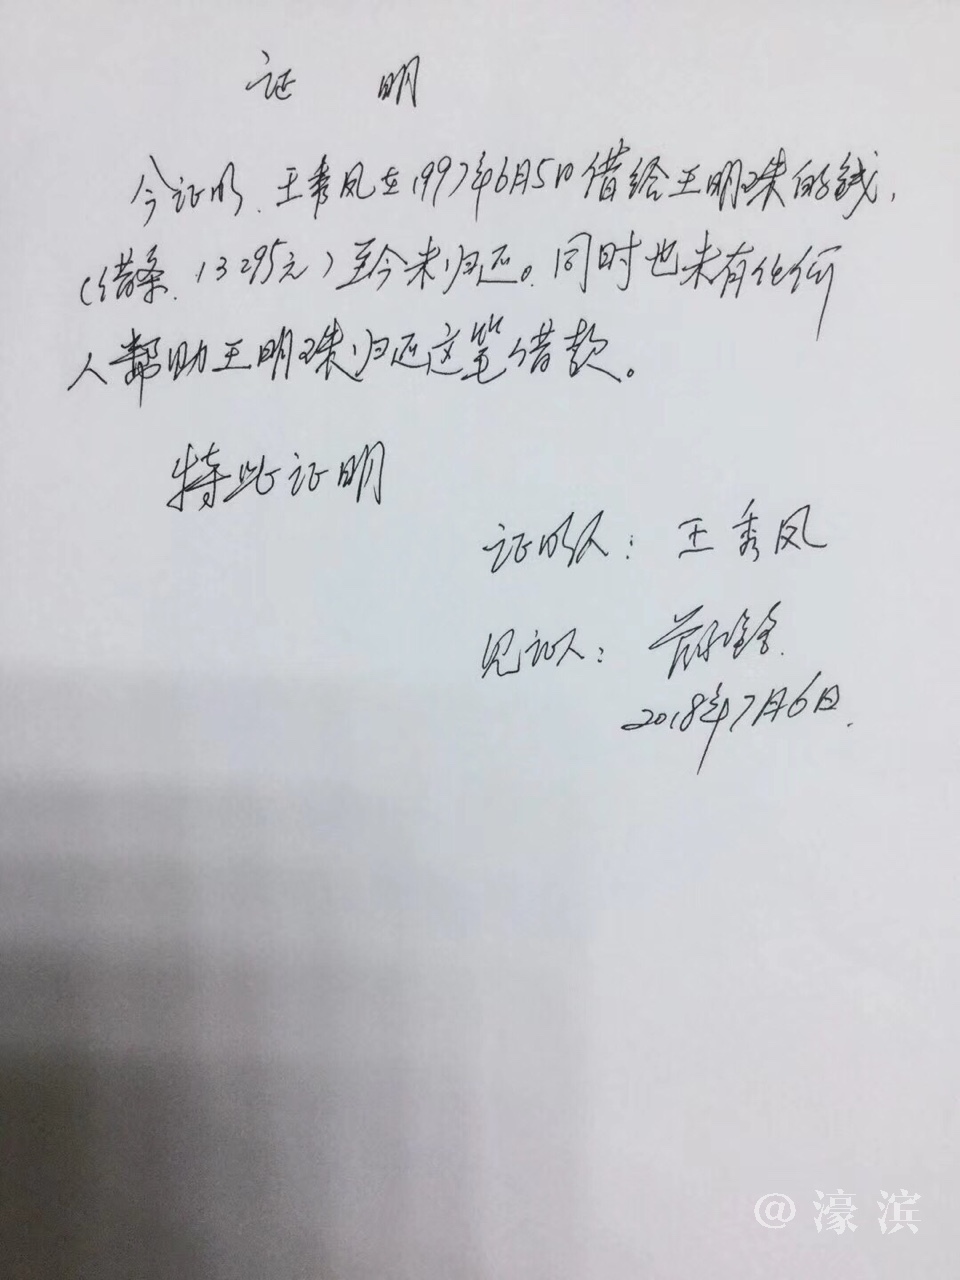 证 明
今证明、王秀凤在1997年6月5日借给王明珠的钱,
(借条、13295元)至今未归还。同时也未有任何
人帮助王明珠归还这笔借款。
特此证明
证明人: 王秀凤
见证人:
2018年7月6日.
@濠滨